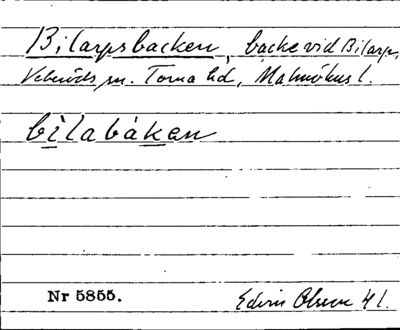 Bilarpsbacken, backe vid Bilarp,
Veberöds sn. Torna hd, Malmöhus l.
bìlabáken
Nr 5855.
Edvin Olsson 41.